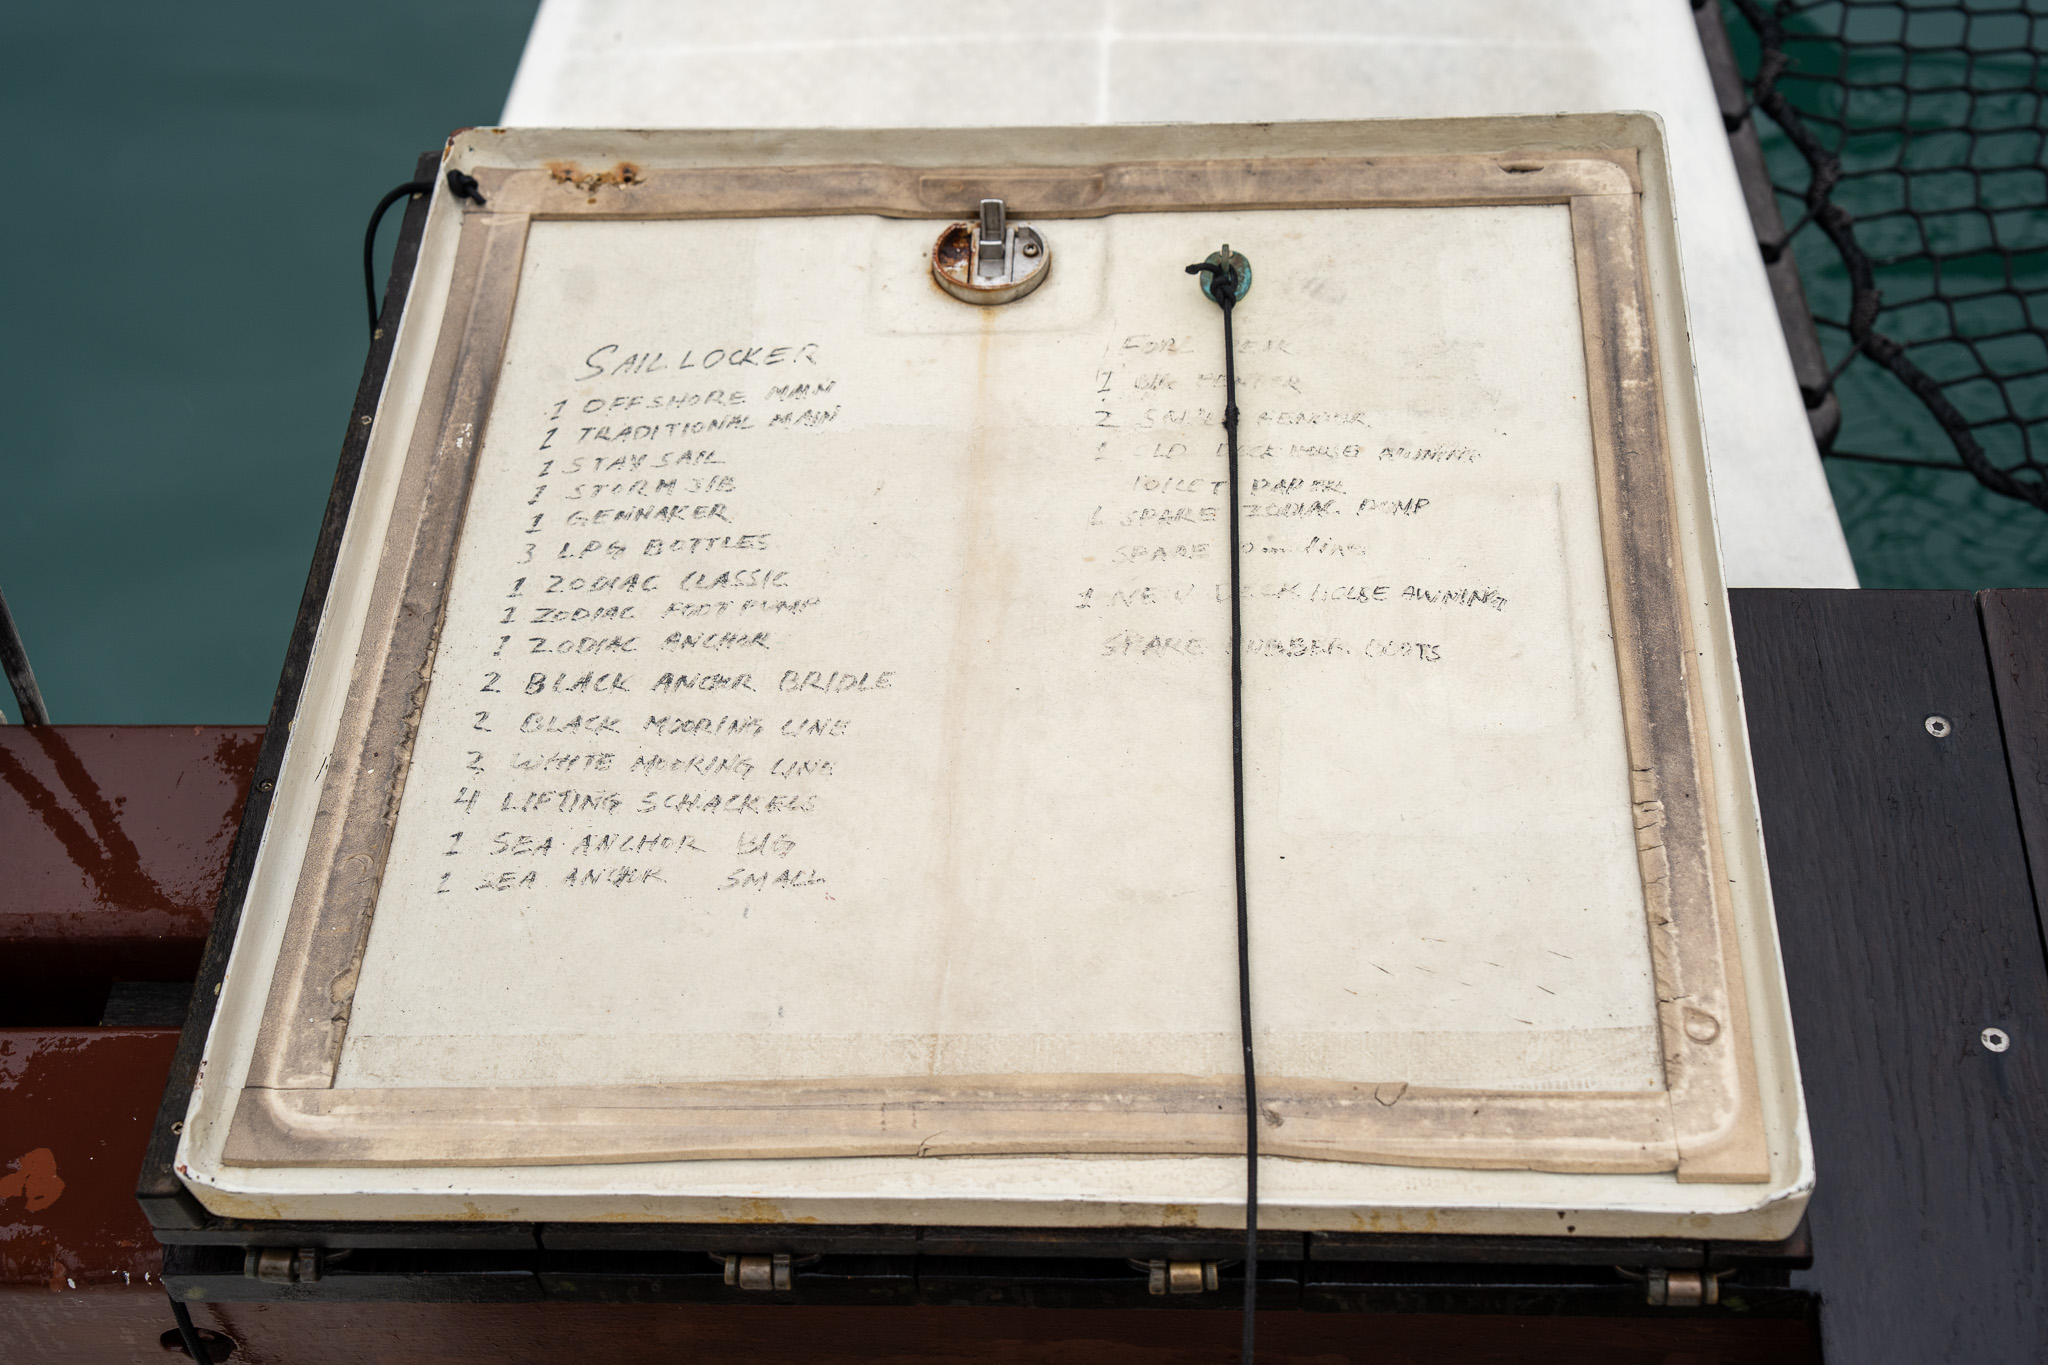 SAIL LOCKER
1 OFFSHORE MAIN
1 TRADITIONAL MAIN
1 STAY SAIL
1 STORM JIB
1 GENNAKER
3 LPG BOTTLES
1 ZODIAC CLASSIC
1 ZODIAC FOOT PUMP
1 ZODIAC ANCHOR
2 BLACK ANCHR BRIDLE
2 BLACK MOORING LINE
2 WHITE MOORING LINE
4 LIFTING SCHACKELS
1 SEA ANCHOR BIG
1 SEA ANCHOR SMALL
FORE PEAK
1 BIG
2
1 OLD DECK HOUSE AWNING
TOILET PAPER
SPARE ZODIAC PUMP
SPARE
1 NEW DECK HOUSE AWNING
SPARE RUBBER